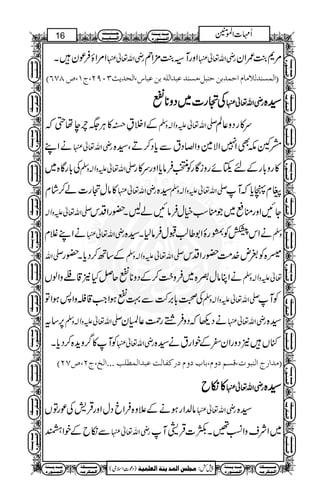 اُمہات المؤمنین
16
مریم بنت عمران رضی اللہ تعالیٰ عنہا اور آسیہ بنت مزاحم رضی اللہ تعالیٰ عنہا امراۃ فرعون ہیں۔
(المسند للامام احمد بن حنبل، مسند عبدالله بن عباس، الحدیث۲۹۰۳، ج۱، ص۶۷۸)
سیدہ رضی اللہ تعالیٰ عنہا کی تجارت میں دونا نفع
سرکار دو عالم صلی اللہ تعالیٰ علیہ والہ وسلم کے اخلاقِ حسنہ کا ہر جگہ چرچا تھا حتی کہ
مشرکین مکہ بھی انہیں الامین والصادق سے یاد کرتے، سیدہ رضی اللہ تعالیٰ عنہا نے اپنے
کاروبار کے لئے یکتائے روزگار کو منتخب فرمایا اور سرکار صلی اللہ تعالیٰ علیہ والہ وسلم کی بارگاہ میں
پیغام پہنچایا کہ آپ صلی اللہ تعالیٰ علیہ والہ وسلم سیدہ رضی اللہ تعالیٰ عنہا کا مال تجارت لے کر شام
جائیں اور منافع میں جو مناسب خیال فرمائیں لے لیں۔ حضور اقدس صلی اللہ تعالیٰ علیہ والہ
وسلم نے اس پیشکش کو بمشورۂ ابوطالب قبول فرما لیا۔ سیدہ رضی اللہ تعالیٰ عنہا نے اپنے غلام
میسرہ کو بغرض خدمت حضور اقدس صلی اللہ تعالیٰ علیہ والہ وسلم کے ساتھ کر دیا۔ حضور صلی اللہ
تعالیٰ علیہ والہ وسلم نے اپنا مال بصرہ میں فروخت کر کے دونا نفع حاصل کیا نیز قافلے والوں
کو آپ صلی اللہ تعالیٰ علیہ والہ وسلم کی صحبت بابرکت سے بہت نفع ہوا جب قافلہ واپس ہوا تو
سیدہ رضی اللہ تعالیٰ عنہا نے دیکھا کہ دو فرشتے رحمت عالمیان صلی اللہ تعالیٰ علیہ والہ وسلم پر سایہ
کناں ہیں نیز دوران سفر کے خوارق نے سیدہ رضی اللہ تعالیٰ عنہا کو آپ کا گرویدہ کر دیا۔
(مدارج النبوت، قسم دوم، باب دوم در کفالت عبدالمطلب ...الخ، ج۲، ص۲۷)
سیدہ رضی اللہ تعالیٰ عنہا کا نکاح
سیدہ رضی اللہ تعالیٰ عنہا مالدار ہونے کے علاوہ فراخ دل اور قریش کی عورتوں
میں اشرف وانسب تھیں۔ بکثرت قریشی آپ رضی اللہ تعالیٰ عنہا سے نکاح کے خواہشمند
پیش کش: مجلس المدینۃ العلمیۃ (دعوت اسلامی)